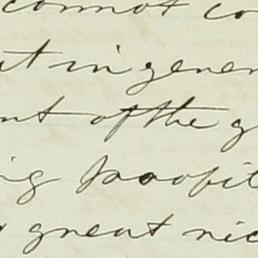 cannot co
ut in gener
nt of the g
ng profit
great nic